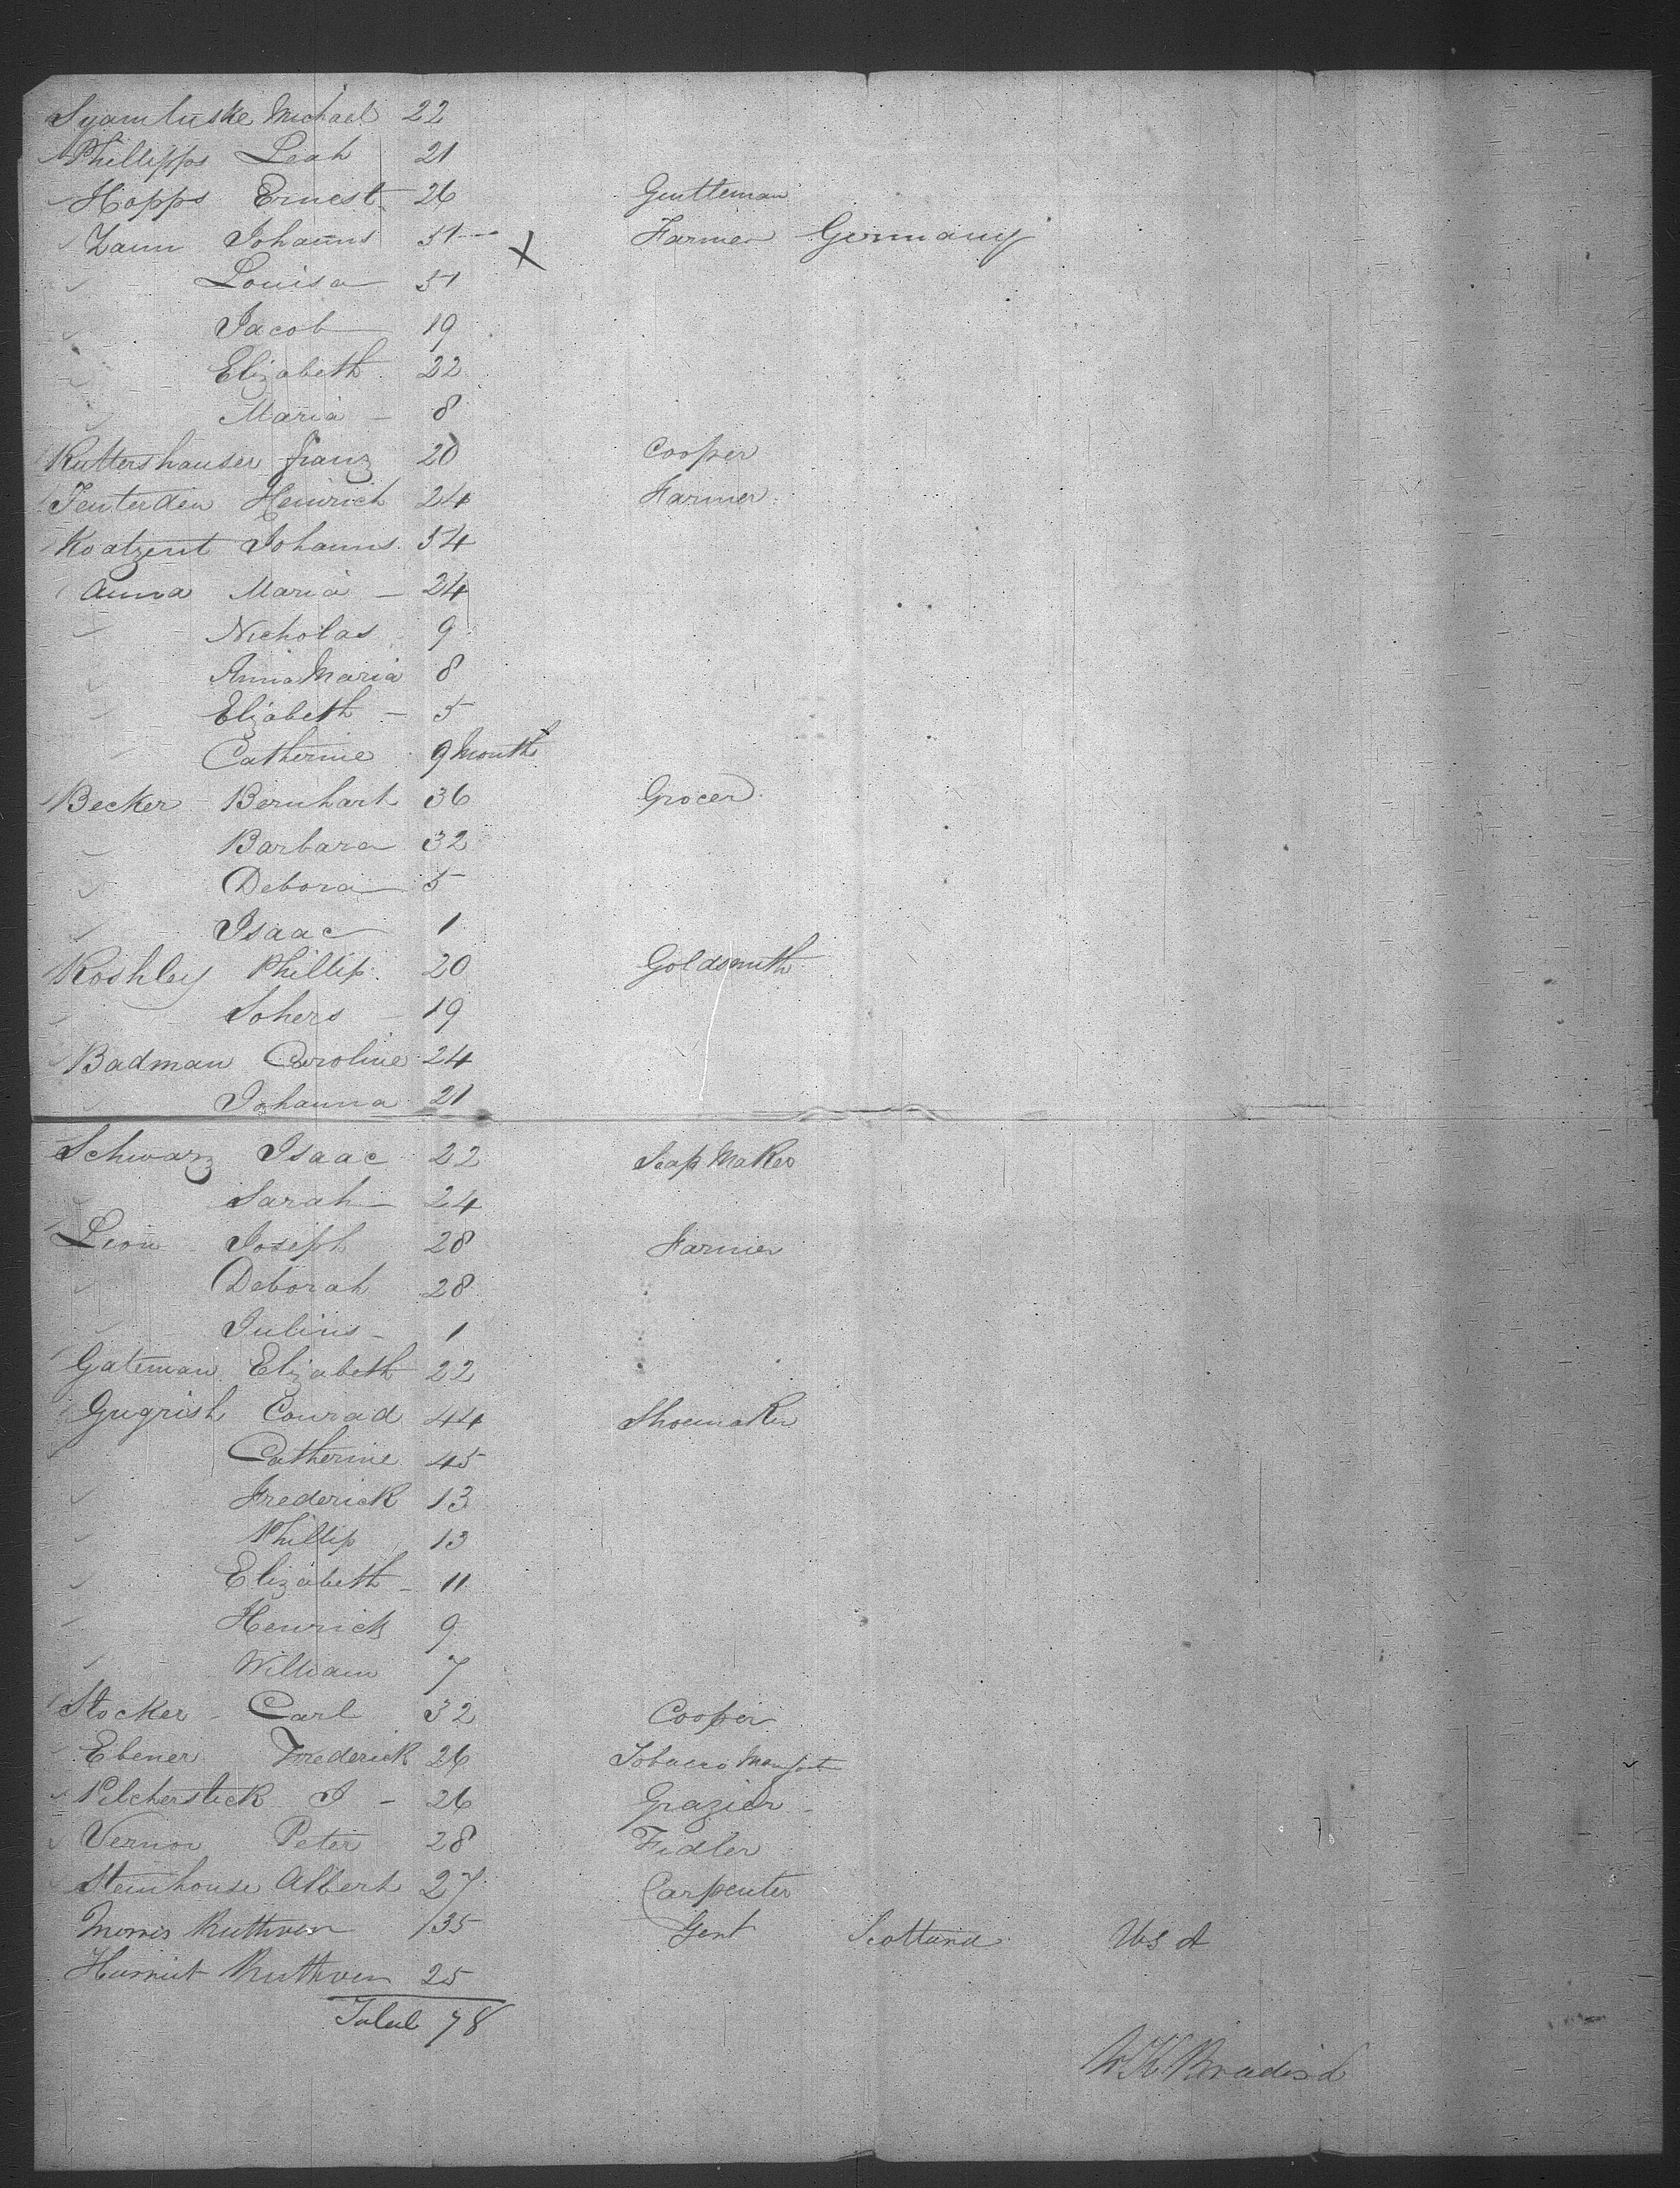 Syamluske Michael 22
Phillipps Leah 21
Hopps Ernest 26 Gentleman
Zaun Johanns 51 X Farmer Germany
Louisa 51
Jacob 19
Elizabeth 22
Maria 8
Kuttershauser Franz 20 Cooper
Heinrich 24 Farmer
Koatzent Johanns 54
Anna Maria 24
Nicholas 9
Anna Maria 8
Elizabeth 5
Catherine 9 Months
Becker Bernhart 36 Grocer
Barbara 32
Debora 5
Isaac 1
Koshley Phillip 20 Goldsmith
Sohers 19
Badman Caroline 24
Johanna 21
Schwarz Isaac 22 Soap Maker
Sarah 24
Leon Joseph 28 Farmer
Deborah 28
Julius 1
Gateman Elizabeth 22
Gugrish Conrad 44 Shoemaker
Catherine 45
Frederick 13
Phillip 13
Elizabeth 11
Henrick 9
William 7
Stocker Carl 32 Cooper
Ebener Frederick 26 Tobacco
Pilcherstick J 26 Grazier
Vernon Peter 28 Fidler
Steinhouse Albert 27 Carpenter
Morris Ruthven 35 Gent Scotland US A
Harriet Ruthven 25
Total 78